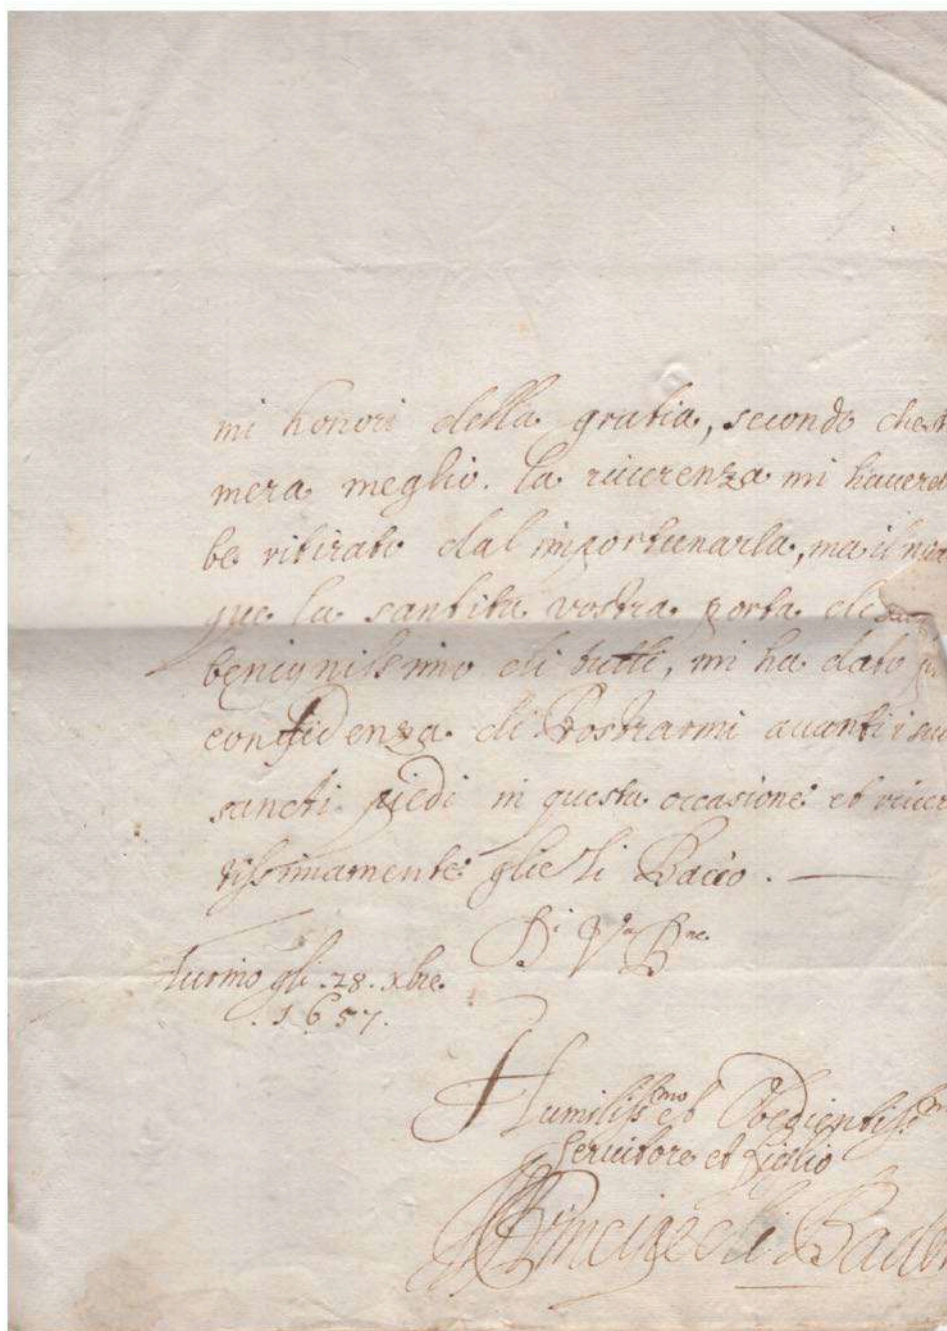 mi honori della gratia, secondo che
mera meglio. la riverenza mi havereb
be ritirato dal importunarla, ma il
que la santita vostra porta di
benignissimo di tutti, mi ha dato
confidenza di Prostrarmi avanti i
sancti piedi in questa occasione et
tissimamente glie li Bacio.
Di V.ra B.ne
Turino gli .28. xbre.
.1657.
Humiliss.mo et Obedientiss.
servitore et figlio
Principe di